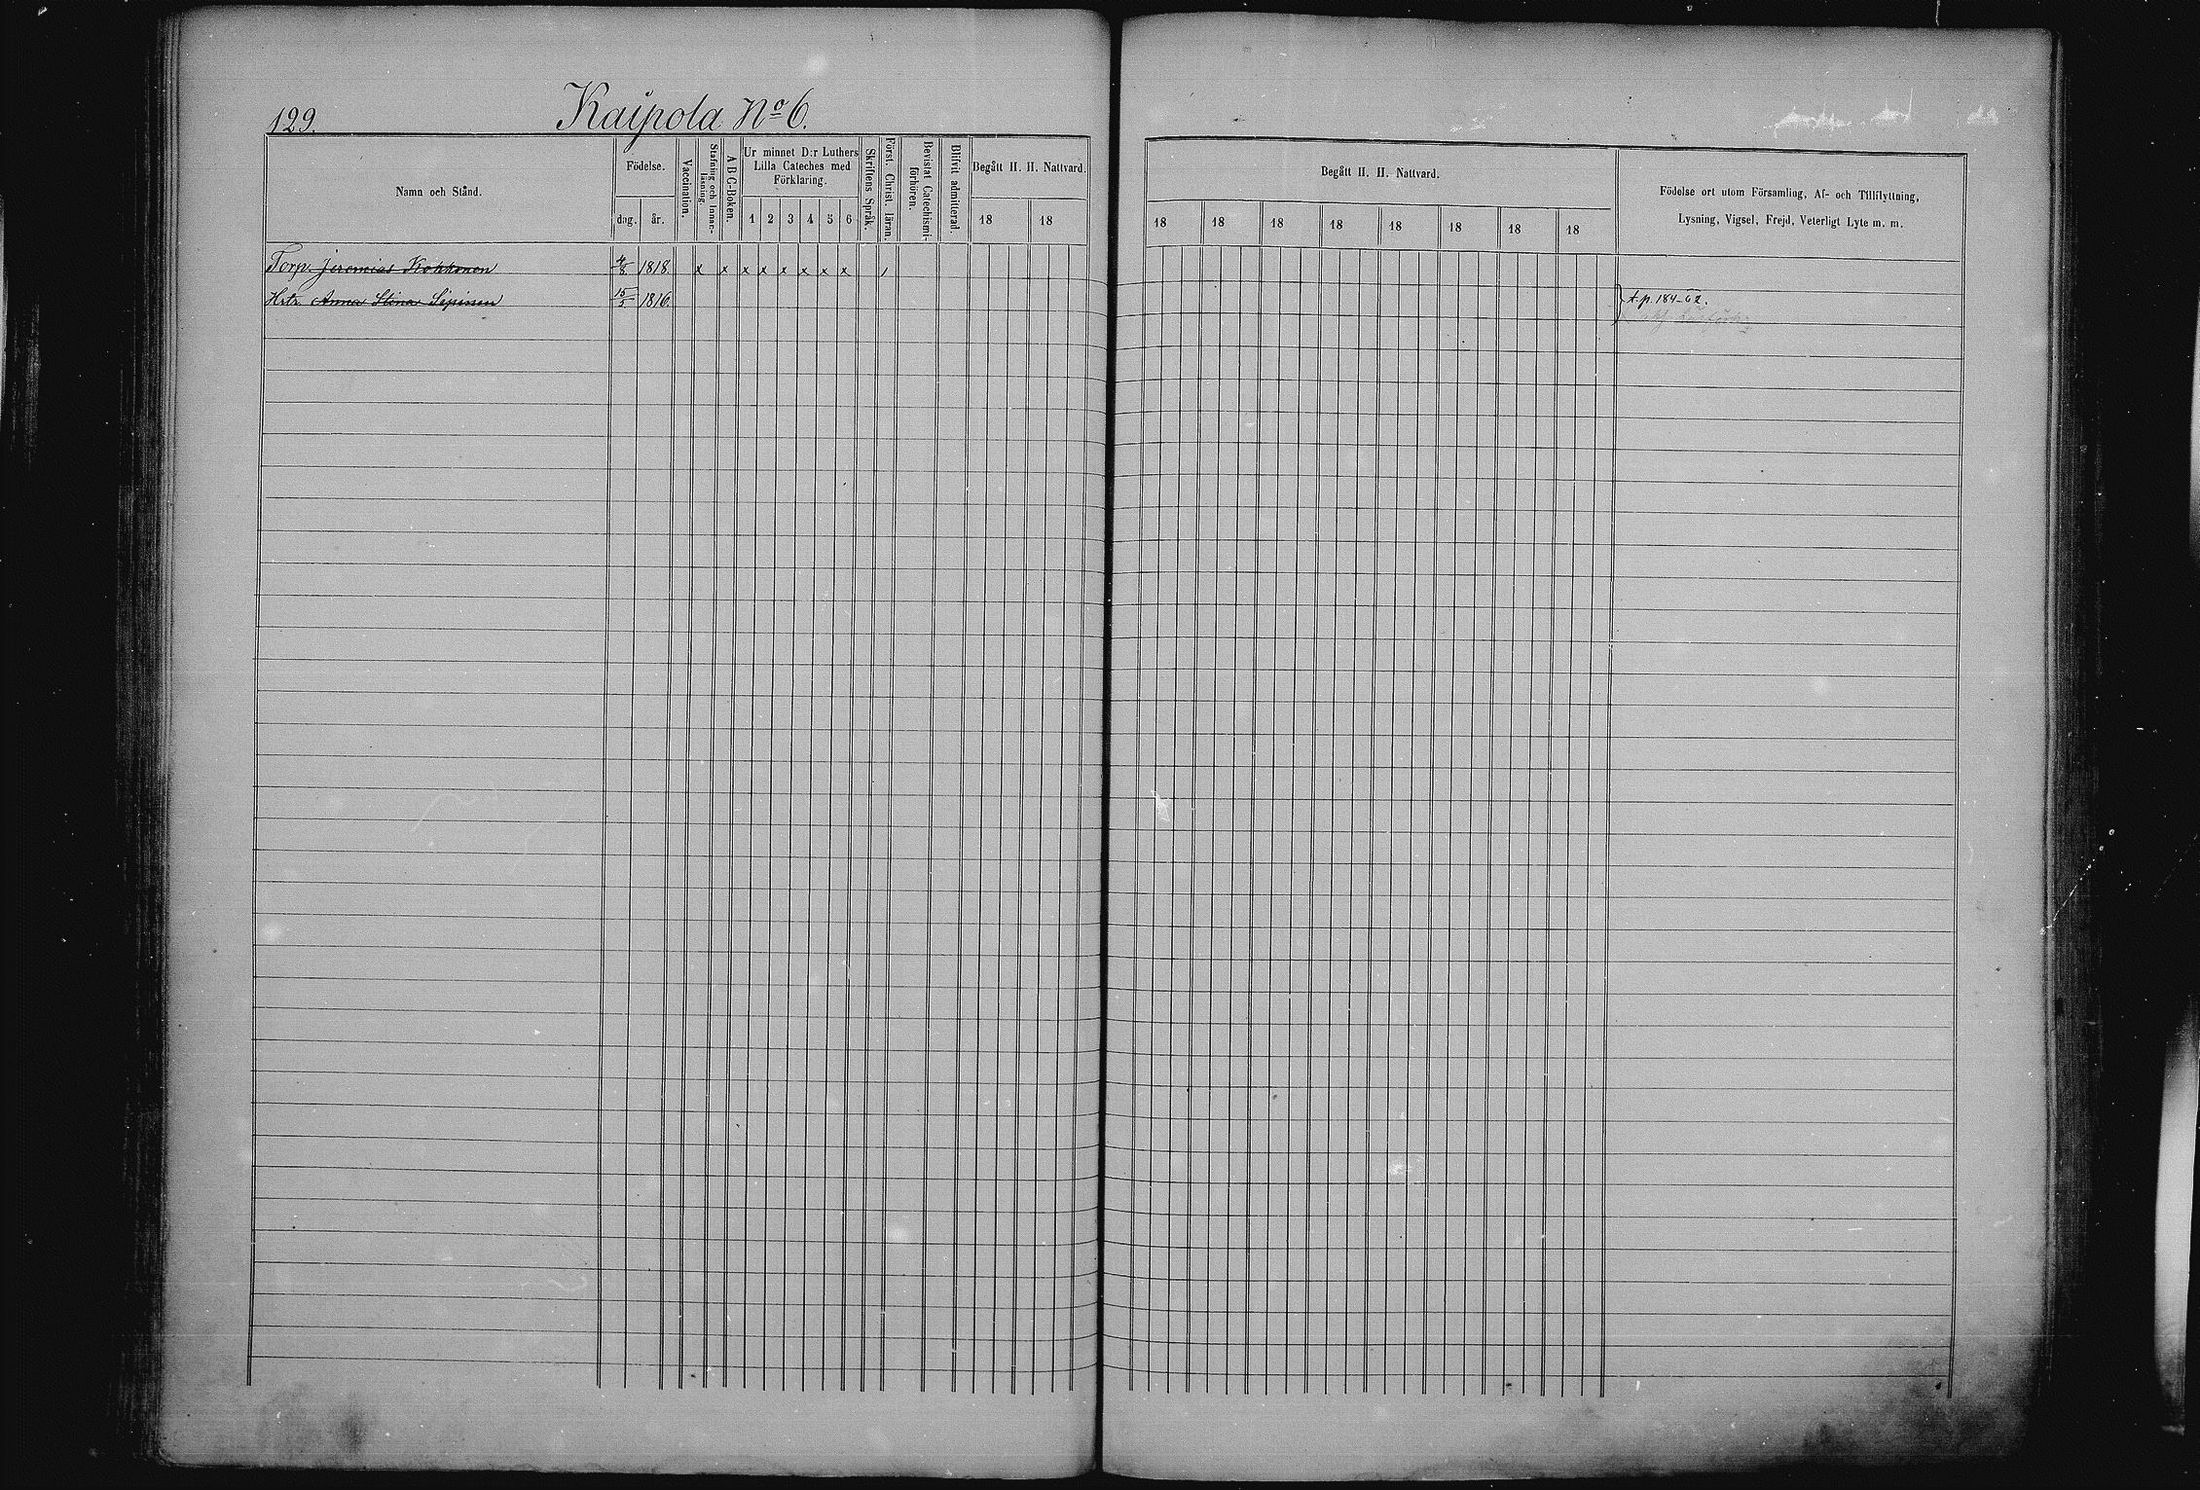 129.
Kaipola No 6.
Namn och Stånd.
Födelse.
dag.
år.
Vaccination.
Stafning och Innan-
läsning.
A B C-Boken.
Ur minnet D:r Luthers
Lilla Cateches med
Förklaring.
1 2 3 4 5 6
Skriftens Språk.
Först. Christ. läran.
Bevistat Catechismi-
förhören.
Blifvit admitterad.
Begått H. H. Nattvard.
18 18
Begått H. H. Nattvard.
18 18 18 18 18 18 18 18
Födelse ort utom Församling, Af- och Tillflyttning,
Lysning, Vigsel, Frejd, Veterligt Lyte m. m.
Torp. Jeremias Kokkonen 4/8 1818. x x x x x x x x
Hstr. Anna Stina Sipinen 15/5 1816.
t. p. 184-62.